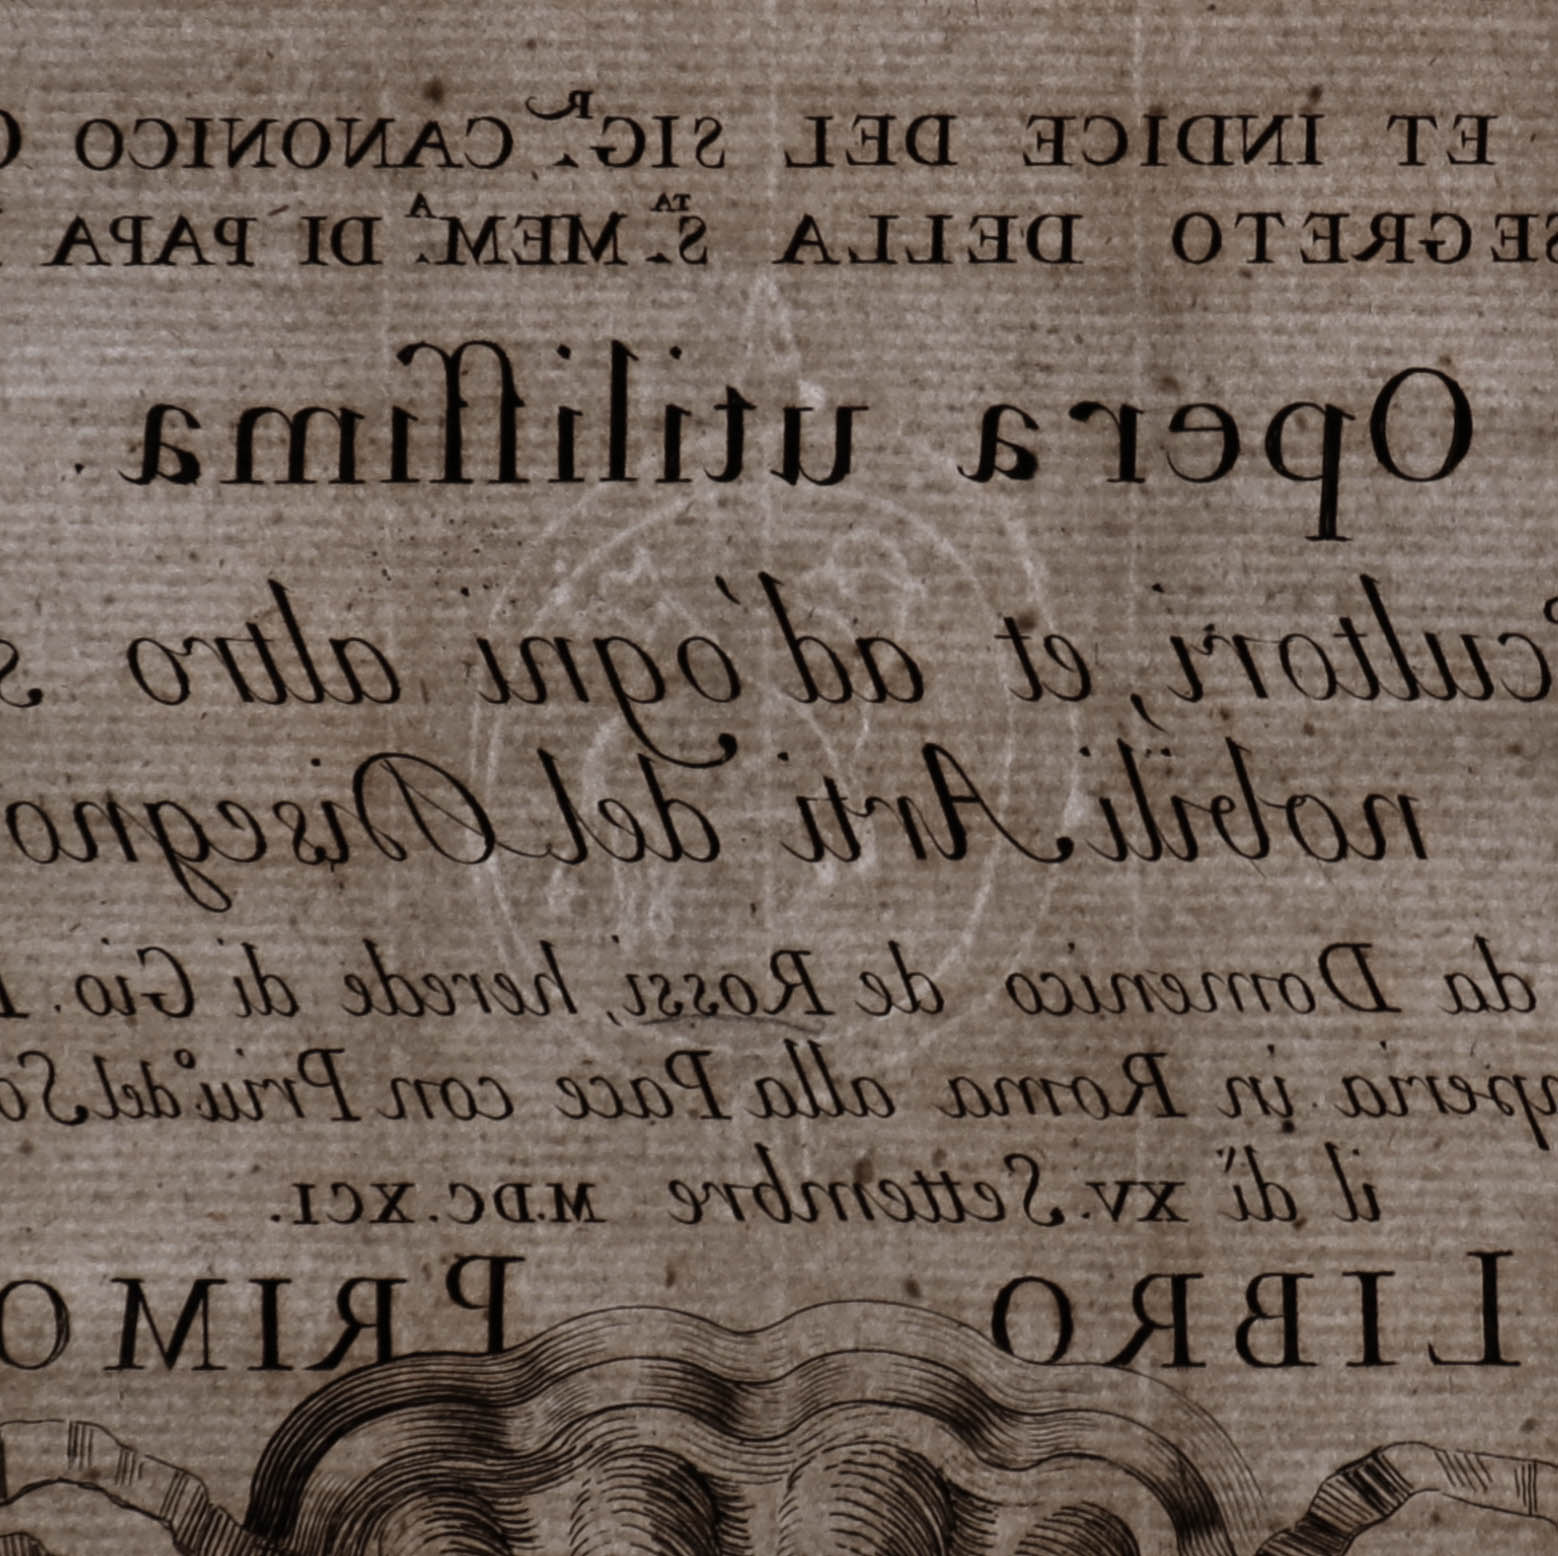 ET INDICE DEL SIG.R CANONICO
SEGRETO DELLA S.TA MEM.A DI PAPA
Opera utiliſſima.
cultori, et ad'ogni altro
nobili Arti del Disegno
da Domenico de Rossi, herede di Gio.
in Roma alla Pace con Priu.o del
il dì XV. Settembre M.DC.XCI.
LIBRO PRIMO